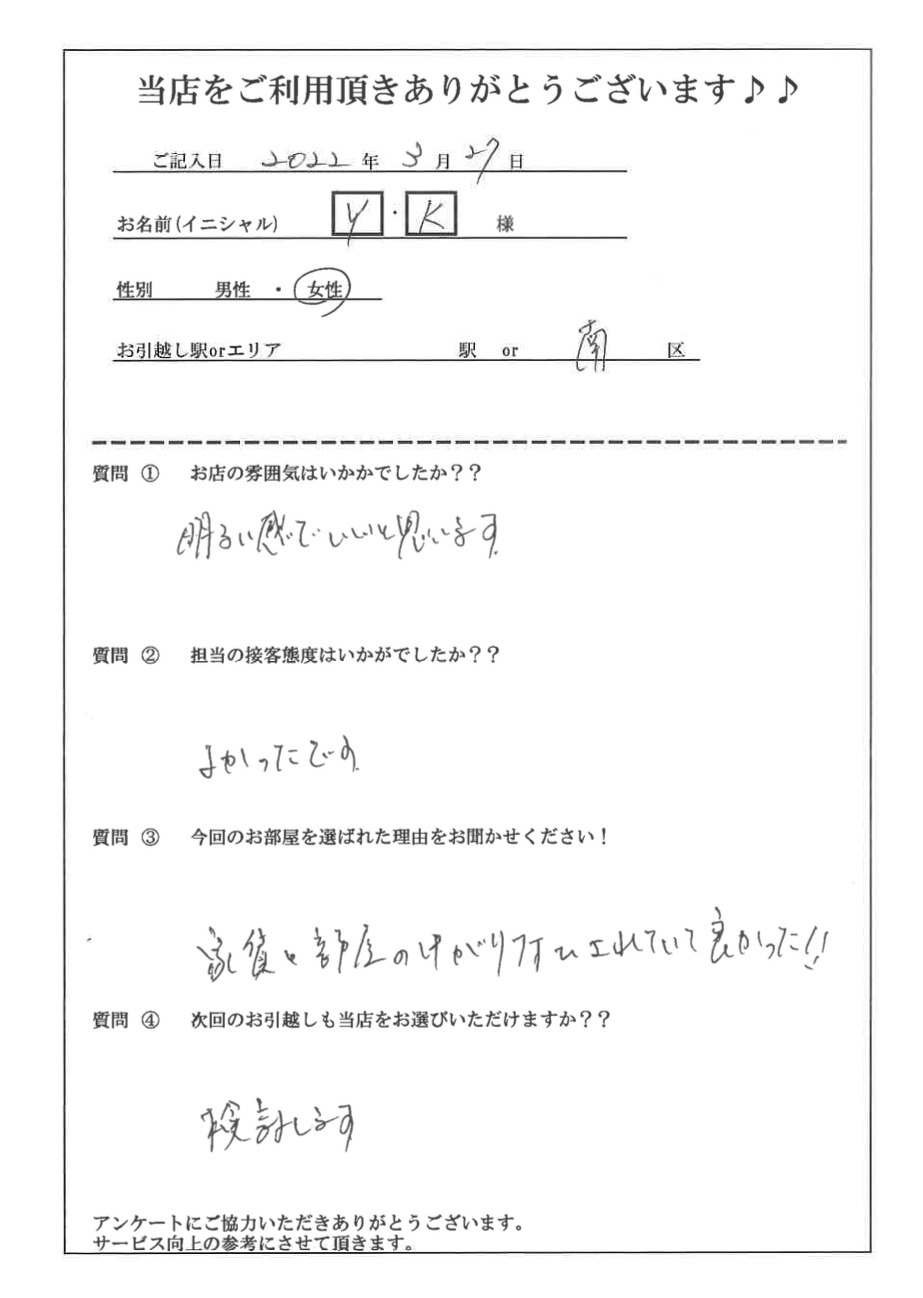 当店をご利用頂きありがとうございます♪♪
ご記入日 2022 年 3 月 27 日
お名前(イニシャル) Y・K 様
性別 男性 ・ 女性
お引越し駅orエリア 駅 or 南 区
質問 ① お店の雰囲気はいかかでしたか??
明るい感じでいいと思います
質問 ② 担当の接客態度はいかがでしたか??
よかったです
質問 ③ 今回のお部屋を選ばれた理由をお聞かせください!
家賃と部屋の とれていて良かった!!
質問 ④ 次回のお引越しも当店をお選びいただけますか??
検討します
アンケートにご協力いただきありがとうございます。
サービス向上の参考にさせて頂きます。